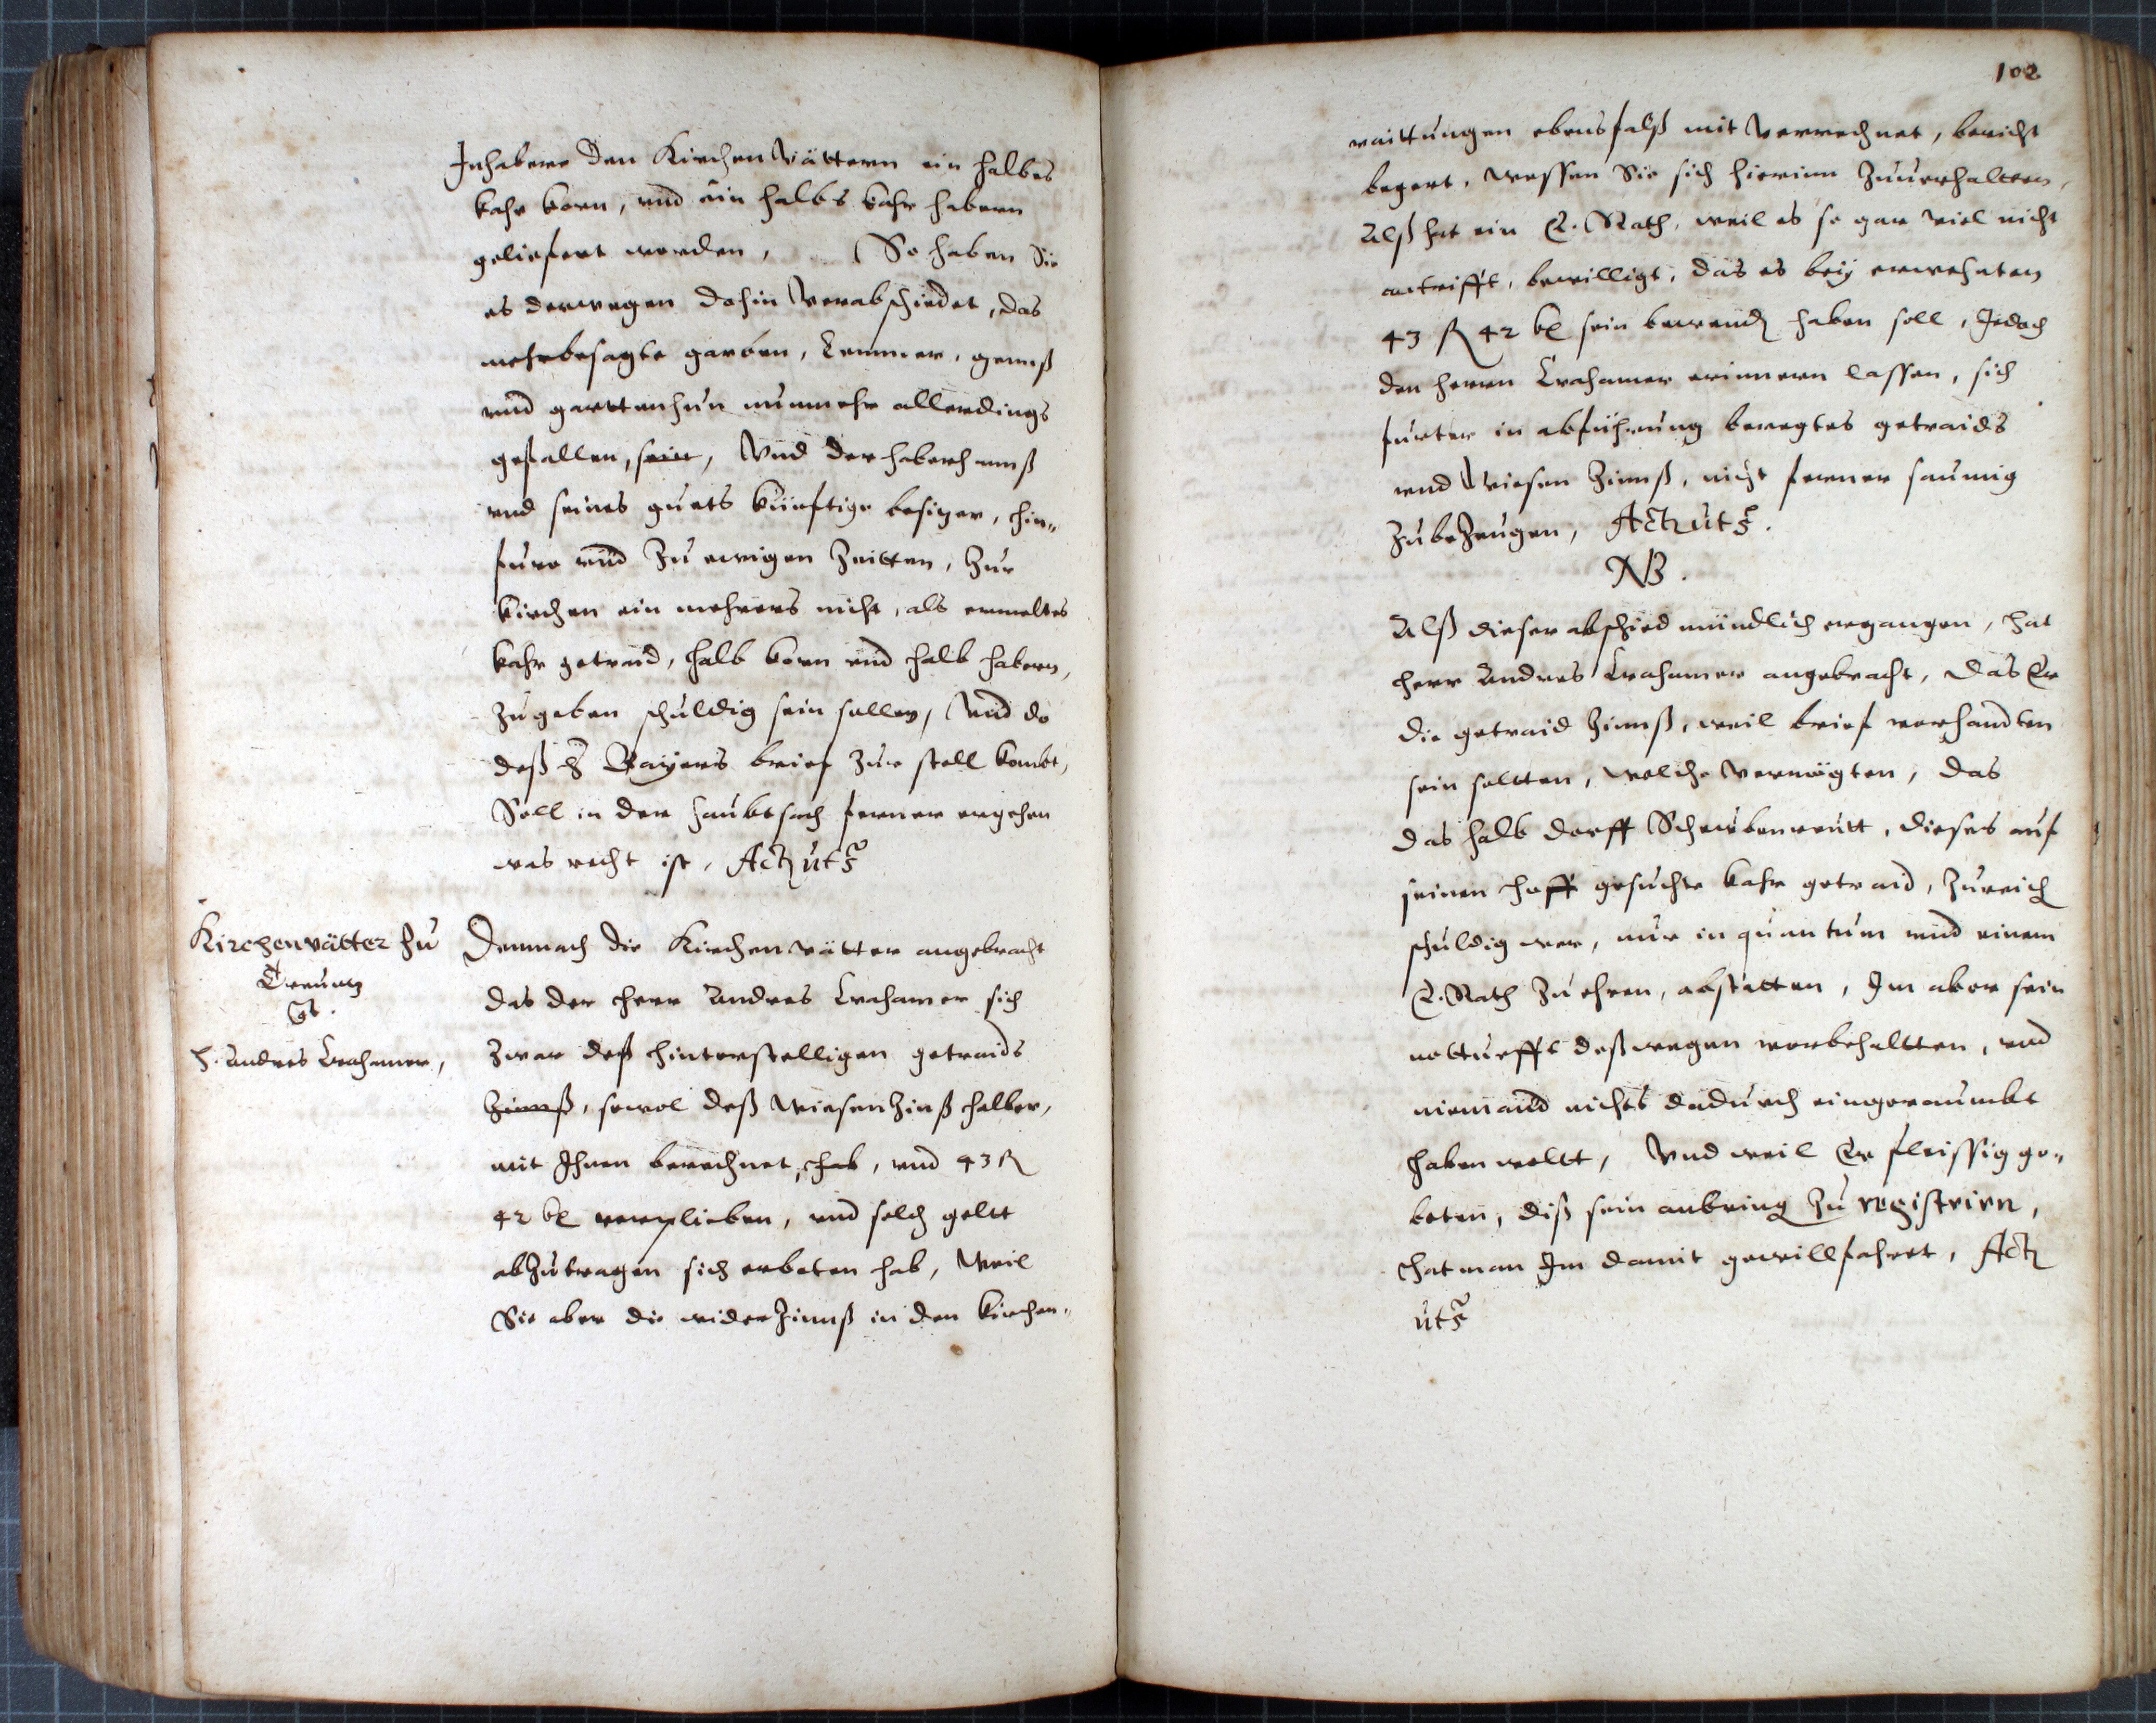 Inhabere den Kirchen Vättern ein halbes
kahr korn, vnd ein halbs kahr habern
geliefert worden, So haben Sie
es derwegen dahin Verabschiedet, das
mehrbesagte garben, Lemmer, genns
vnd garttenhun nunmehr allerdings
gefallen, sein, Vnd der
vnd seines guets künftige besizer, hin„
füro vnd Zu ewigen Zeitten, Zur
kirchen ein mehrers nicht, als ermeltes
kahr getraid, halb korn vnd halb habern,
Zu geben schuldig sein sollen, Vnd do
deß Bayers brief Zur stell kombt,
Soll in der haubtsach ferner ergehen
was recht ist, Act ut s
Kirchenvätter Zu
Treunz
Ct.
H. Andres Crahamer,
Demnach die Kirchenvätter angebracht
das der Herr Andres Crahamer sich
Zwar deß hinterstelligen getraids
Zinnß, sowol deß WiesenZinß halber,
mit Ihnen berechnet, hab, vnd 43 fl
42 kr verplieben, vnd solch geltt
abZutragen sich erboten hab, Weil
Sie aber die widerZinnß in den kirchen„
102
raittungen ebensfalß mit Verrechnet, bericht
begert, wessen Sie sich hierinn Zuuerhaltten,
Alß hat ein E. Rath, weil es so gar Viel nicht
antrifft, bewilligt, das es bey erwehnten
43 fl 42 kr sein bewend haben soll, Jedoch
den Herrn Crahamer erinnern lassen, sich
furter in abführung beregtes getraids
vnd Wiesen Zinnß, nicht ferner saumig
ZubeZeugen, Act ut s.
NB.
Alß dieser abschied mündlich ergangen, hat
Herr Andres Crahamer angebracht, das Er
die getraid Zinnß, weil brief verhandten
sein soltten, welche Vermögten, das
das halb dorff dieses auf
seinen hoff gesuchte kahr getraid, Zureich
schuldig wer, nur in quantum vnd einem
E. Rath Zu ehren, abstatten, Im aber sein
notturfft deßwegen vorbehaltten, vnd
niemand nichts dadurch eingeraumbt
haben woltt, Vnd weil Er fleissig ge„
beten, diß sein anbring Zu registrirn,
hat man Im damit gewillfahret, Act
ut s